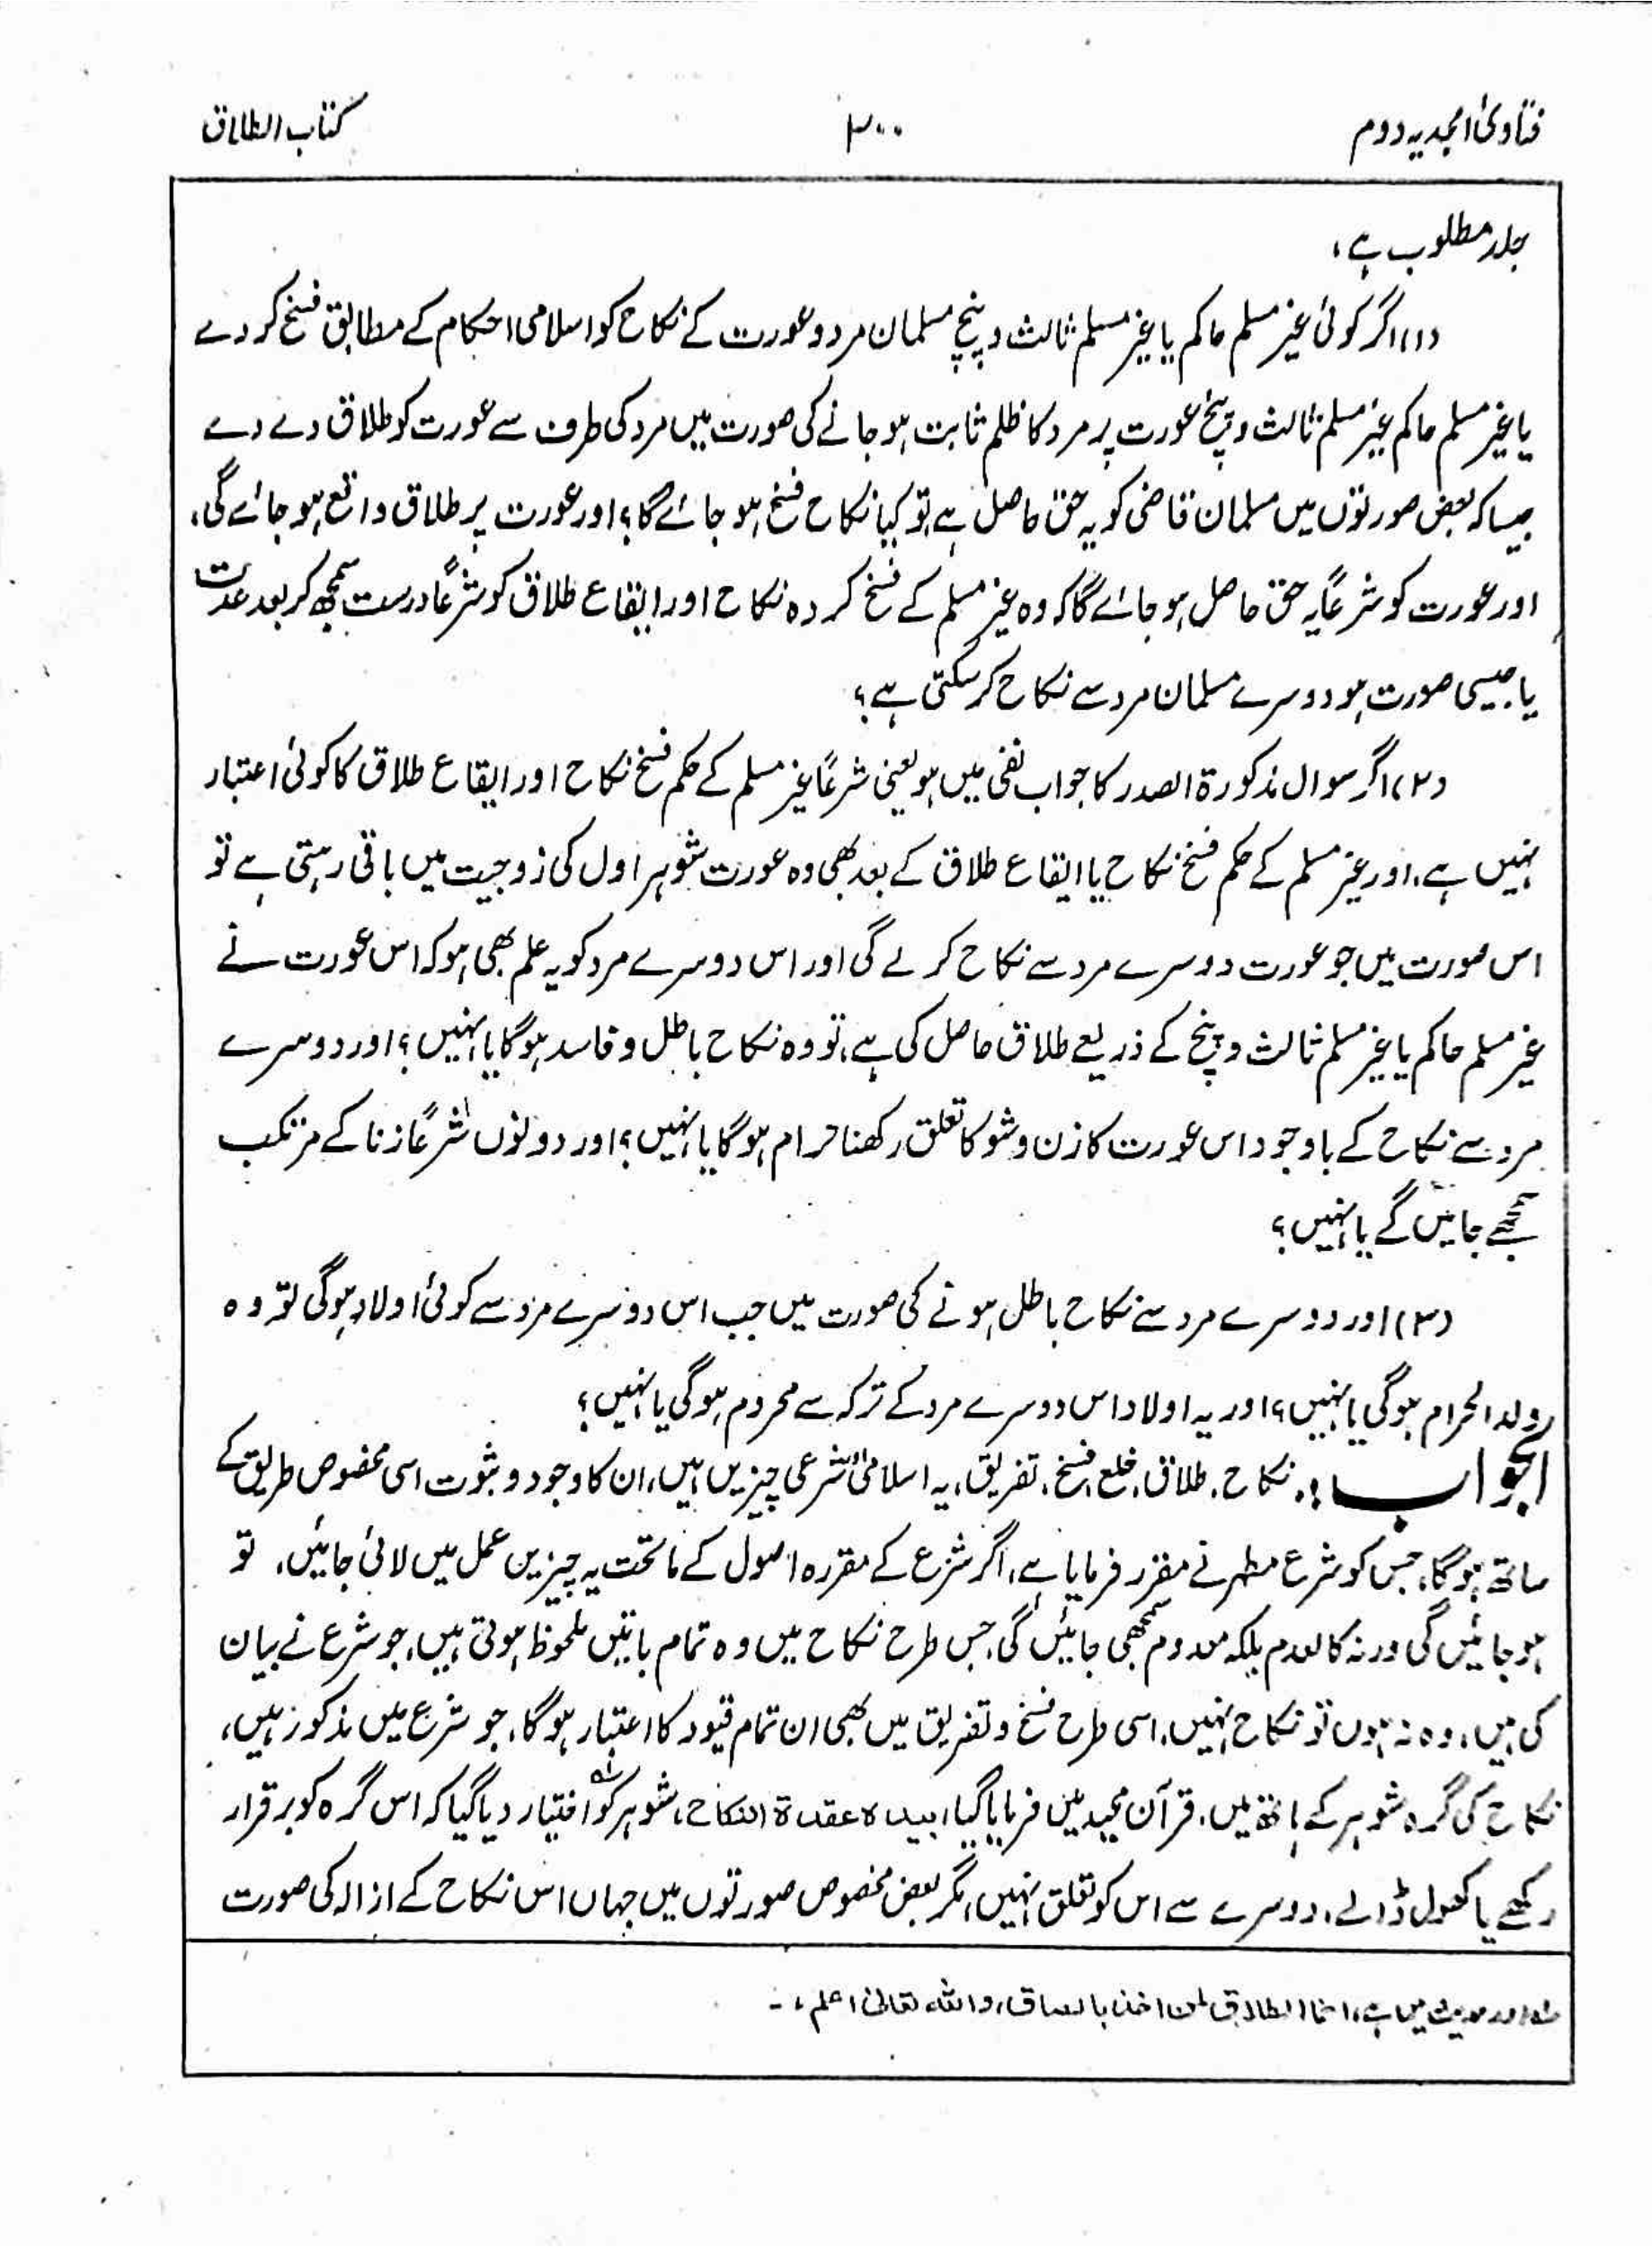 فتاویٰ امجدیہ دوم
۳۰۰
کتاب الطلاق
جلد مطلوب ہے،
(۱) اگر کوئی غیر مسلم حاکم یا غیر مسلم ثالث و پنچ مسلمان مرد و عورت کے نکاح کو اسلامی احکام کے مطابق فسخ کر دے
یا غیر مسلم حاکم غیر مسلم ثالث و پنچ عورت پر مرد کا ظلم ثابت ہو جانے کی صورت میں مرد کی طرف سے عورت کو طلاق دے دے
جیسا کہ بعض صورتوں میں مسلمان قاضی کو یہ حق حاصل ہے تو کیا نکاح فسخ ہو جائے گا؟ اور عورت پر طلاق واقع ہو جائے گی،
اور عورت کو شرعاً یہ حق حاصل ہو جائے گا کہ وہ غیر مسلم کے فسخ کردہ نکاح اور ایقاع طلاق کو شرعاً درست سمجھ کر بعد عدت
یا جیسی صورت ہو دوسرے مسلمان مرد سے نکاح کر سکتی ہے؟
(۲) اگر سوال مذکورۃ الصدر کا جواب نفی میں ہو یعنی شرعاً غیر مسلم کے حکم فسخ نکاح اور ایقاع طلاق کا کوئی اعتبار
نہیں ہے، اور غیر مسلم کے حکم فسخ نکاح یا ایقاع طلاق کے بعد بھی وہ عورت شوہر اول کی زوجیت میں باقی رہتی ہے تو
اس صورت میں جو عورت دوسرے مرد سے نکاح کر لے گی اور اس دوسرے مرد کو یہ علم بھی ہو کہ اس عورت نے
غیر مسلم حاکم یا غیر مسلم ثالث و پنچ کے ذریعے طلاق حاصل کی ہے، تو وہ نکاح باطل و فاسد ہو گا یا نہیں؟ اور دوسرے
مرد سے نکاح کے باوجود اس عورت کا زن و شو کا تعلق رکھنا حرام ہو گا یا نہیں؟ اور دونوں شرعاً زنا کے مرتکب
سمجھے جائیں گے یا نہیں؟
(۳) اور دوسرے مرد سے نکاح باطل ہونے کی صورت میں جب اس دوسرے مرد سے کوئی اولاد ہو گی تو وہ
ولد الحرام ہو گی یا نہیں؟ اور یہ اولاد اس دوسرے مرد کے ترکہ سے محروم ہو گی یا نہیں؟
الجواب :۔ نکاح، طلاق، خلع، فسخ، تفریق، یہ اسلامی شرعی چیزیں ہیں، ان کا وجود و ثبوت اسی مخصوص طریق کے
ساتھ ہو گا، جس کو شرع مطہر نے مقرر فرمایا ہے، اگر شرع کے مقررہ اصول کے ماتحت یہ چیزیں عمل میں لائی جائیں، تو
ہو جائیں گی ورنہ کالعدم بلکہ معدوم سمجھی جائیں گی، جس طرح نکاح میں وہ تمام باتیں ملحوظ ہوتی ہیں، جو شرع نے بیان
کی ہیں، وہ نہ ہوں تو نکاح نہیں، اسی طرح فسخ و تفریق میں بھی ان تمام قیود کا اعتبار ہو گا، جو شرع میں مذکور ہیں،
نکاح کی گرہ شوہر کے ہاتھ میں، قرآن مجید میں فرمایا گیا، بیدہ عقدۃ النکاح، شوہر کو اختیار دیا گیا کہ اس گرہ کو برقرار
رکھے یا کھول ڈالے، دوسرے سے اس کو تعلق نہیں، مگر بعض مخصوص صورتوں میں جہاں اس نکاح کے ازالہ کی صورت
اور حدیث میں ہے، انما الطلاق لمن اخذ بالساق، واللہ تعالیٰ اعلم، ۔